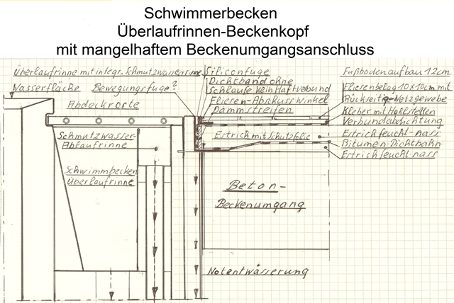 Schwimmerbecken
Überlaufrinnen-Beckenkopf
mit mangelhaftem Beckenumgangsanschluss
Überlaufrinne mit integr. Schmutzwasserrinne
Wasserfläche
Bewegungsfuge?
Abdeckroste
Siliconfuge
Dichtband ohne
Schlaufe kein Haftverbund
Fliesen-Abschlusswinkel
Dämmstreifen
Fußbodenaufbau 12cm
Fliesenbelag 10x10cm mit
Rückseitig-Netzgewebe
Kleber mit
Verbundabdichtung
Estrich feucht-nass
Bitumen Dichtbahn
Estrich feucht nass
Schmutzwasser
Ablaufrinne
Estrich mit Schutzfolie
Schwimmbecken
Überlaufrinne
Beton-
Beckenumgang
Notentwässerung